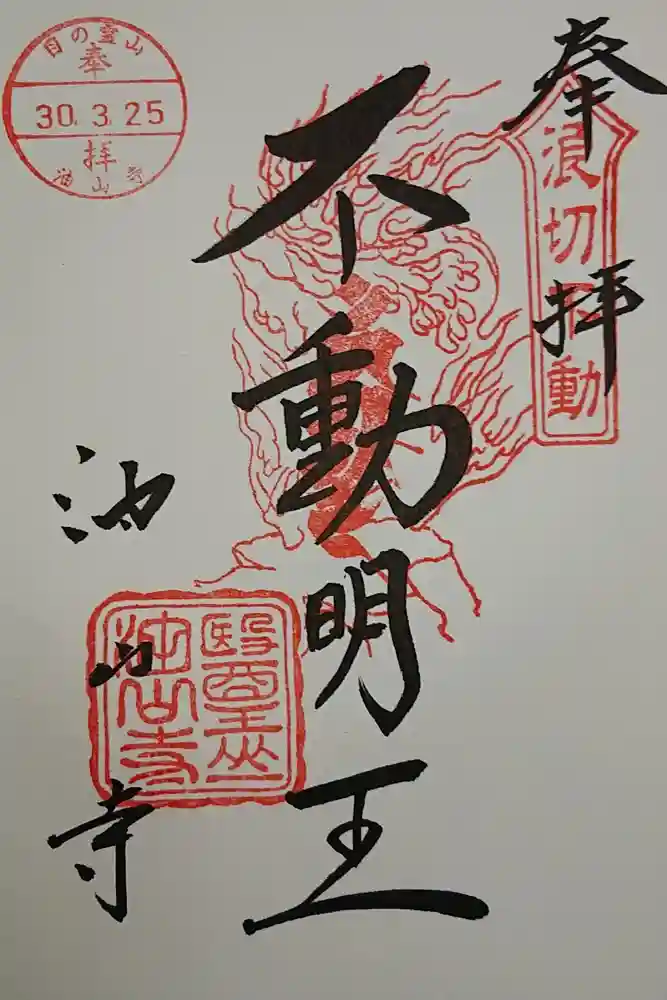 奉拝
浪切不動
不動明王
池山寺
醫王山
池山寺
目の霊山
奉
30.3.25
拝
池山寺